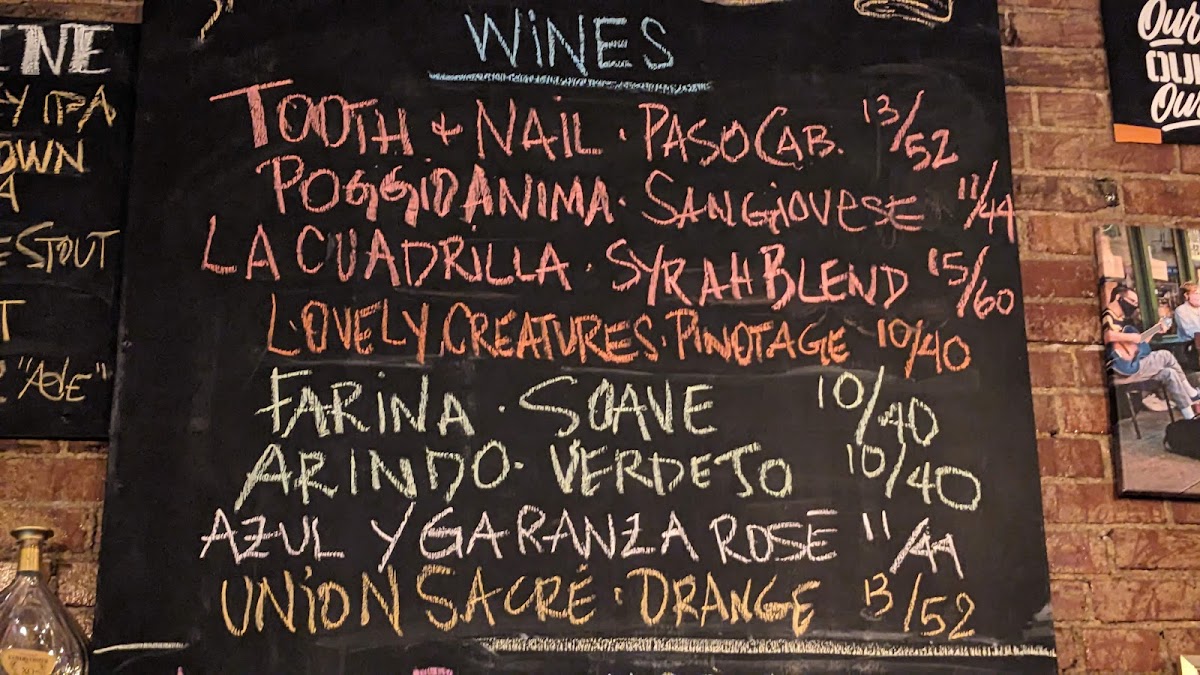 WiNES
TOOTH + NAiL · PASO CAB. 13/52
POGGIO ANIMA · SANGiOVESE 11/44
LA CUADRILLA · SYRAH BLEND 15/60
LOVELY CREATURES · PINOTAGE 10/40
FARiNA · SOAVE 10/40
ARINDO · VERDEJO 10/40
AZUL Y GARANZA ROSĒ 11/44
UNiON SACRÉ · ORANGE 13/52
INE
Y IPA
OWN
A
ESTOUT
T
"Ade"
Our
OUR
Our
XO